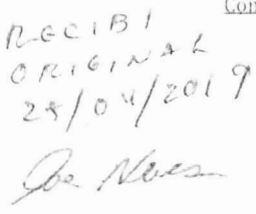 Con
RECIBI
ORIGINAL
24/04/2019